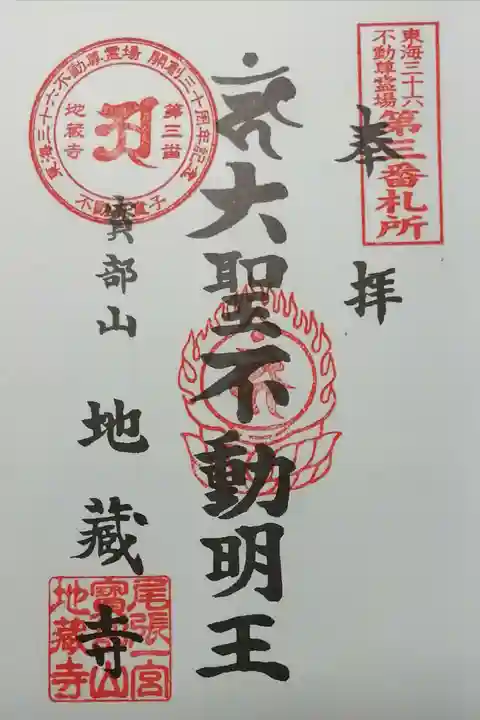 東海三十六
不動尊霊場
第三番札所
奉拝
大聖不動明王
東海三十六不動尊霊場 開創三十周年記念
第三番
地蔵寺
寳部山 地蔵寺
尾張一宮
寳部山
地蔵寺